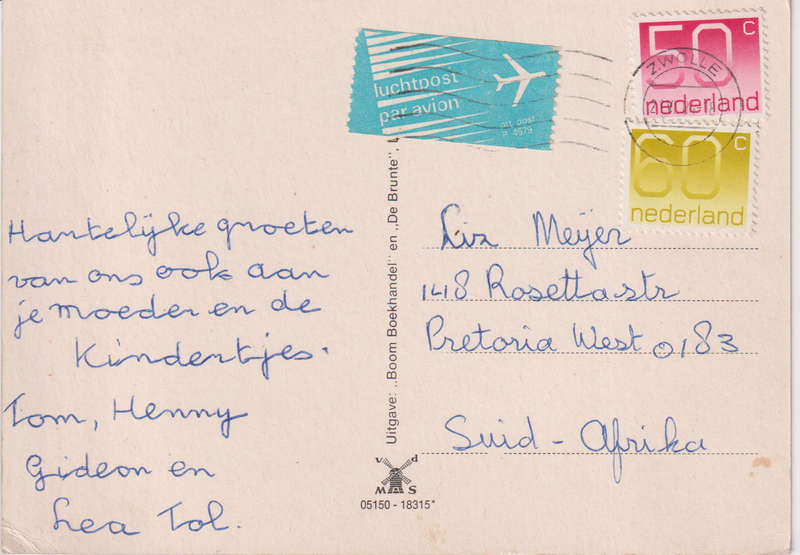 Hantelijke groeten
van ons ook aan
je moeder en de
Kindertjes.
Tom, Henny
Gideon en
Lea Tol.
luchtpost
par avion
ptt post
p 4579
50 c
nederland
60 c
nederland
ZWOLLE
Liz Meijer
148 Rosettastr
Pretoria West 0183
Suid-Afrika
Uitgave: „Boom Boekhandel" en „De Brunte",
v d
MAS
05150 - 18315*